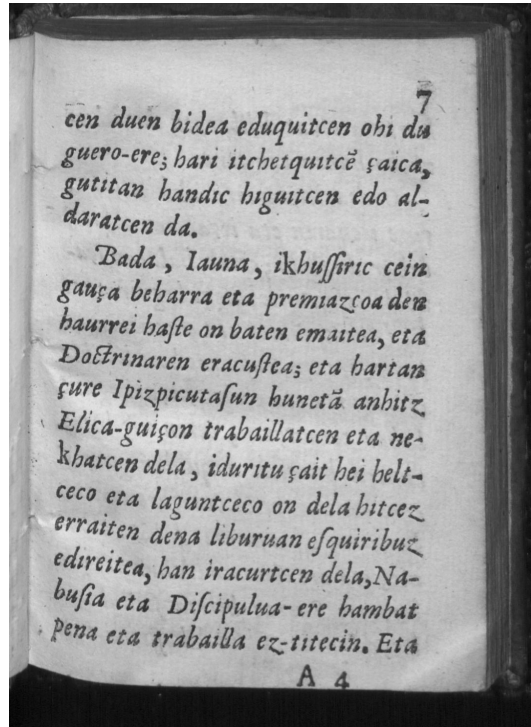 7
cen duen bidea eduquitcen ohi du
guero-ere; hari itchetquitcē çaica,
gutitan handic higuitcen edo al-
daratcen da.
Bada, Iauna, ikhuſſiric cein
gauça beharra eta premiazcoa den
haurrei haſte on baten emaitea, eta
Doctrinaren eracuſtea; eta hartan
çure Ipizpicutaſun hunetā anhitz
Elica-guiçon trabaillatcen eta ne-
khatcen dela, iduritu çait hei helt-
ceco eta laguntceco on dela hitcez
erraiten dena liburuan eſquiribuz
edireitea, han iracurtcen dela, Na-
buſia eta Diſcipulua-ere hambat
pena eta trabailla ez-titecin. Eta
A 4